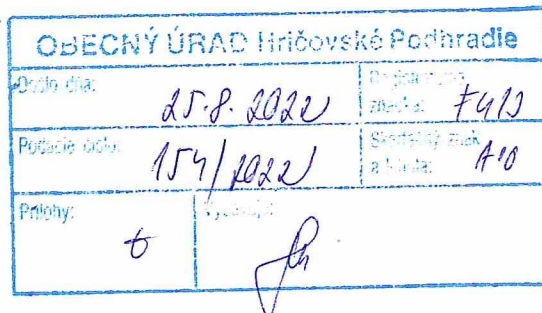 OBECNÝ ÚRAD Hričovské Podhradie
Došlo dňa: 25.8.2022
Registratúrna značka:
Podacie číslo: 154/2022
Skartačný znak a lehota: A10
Prílohy: